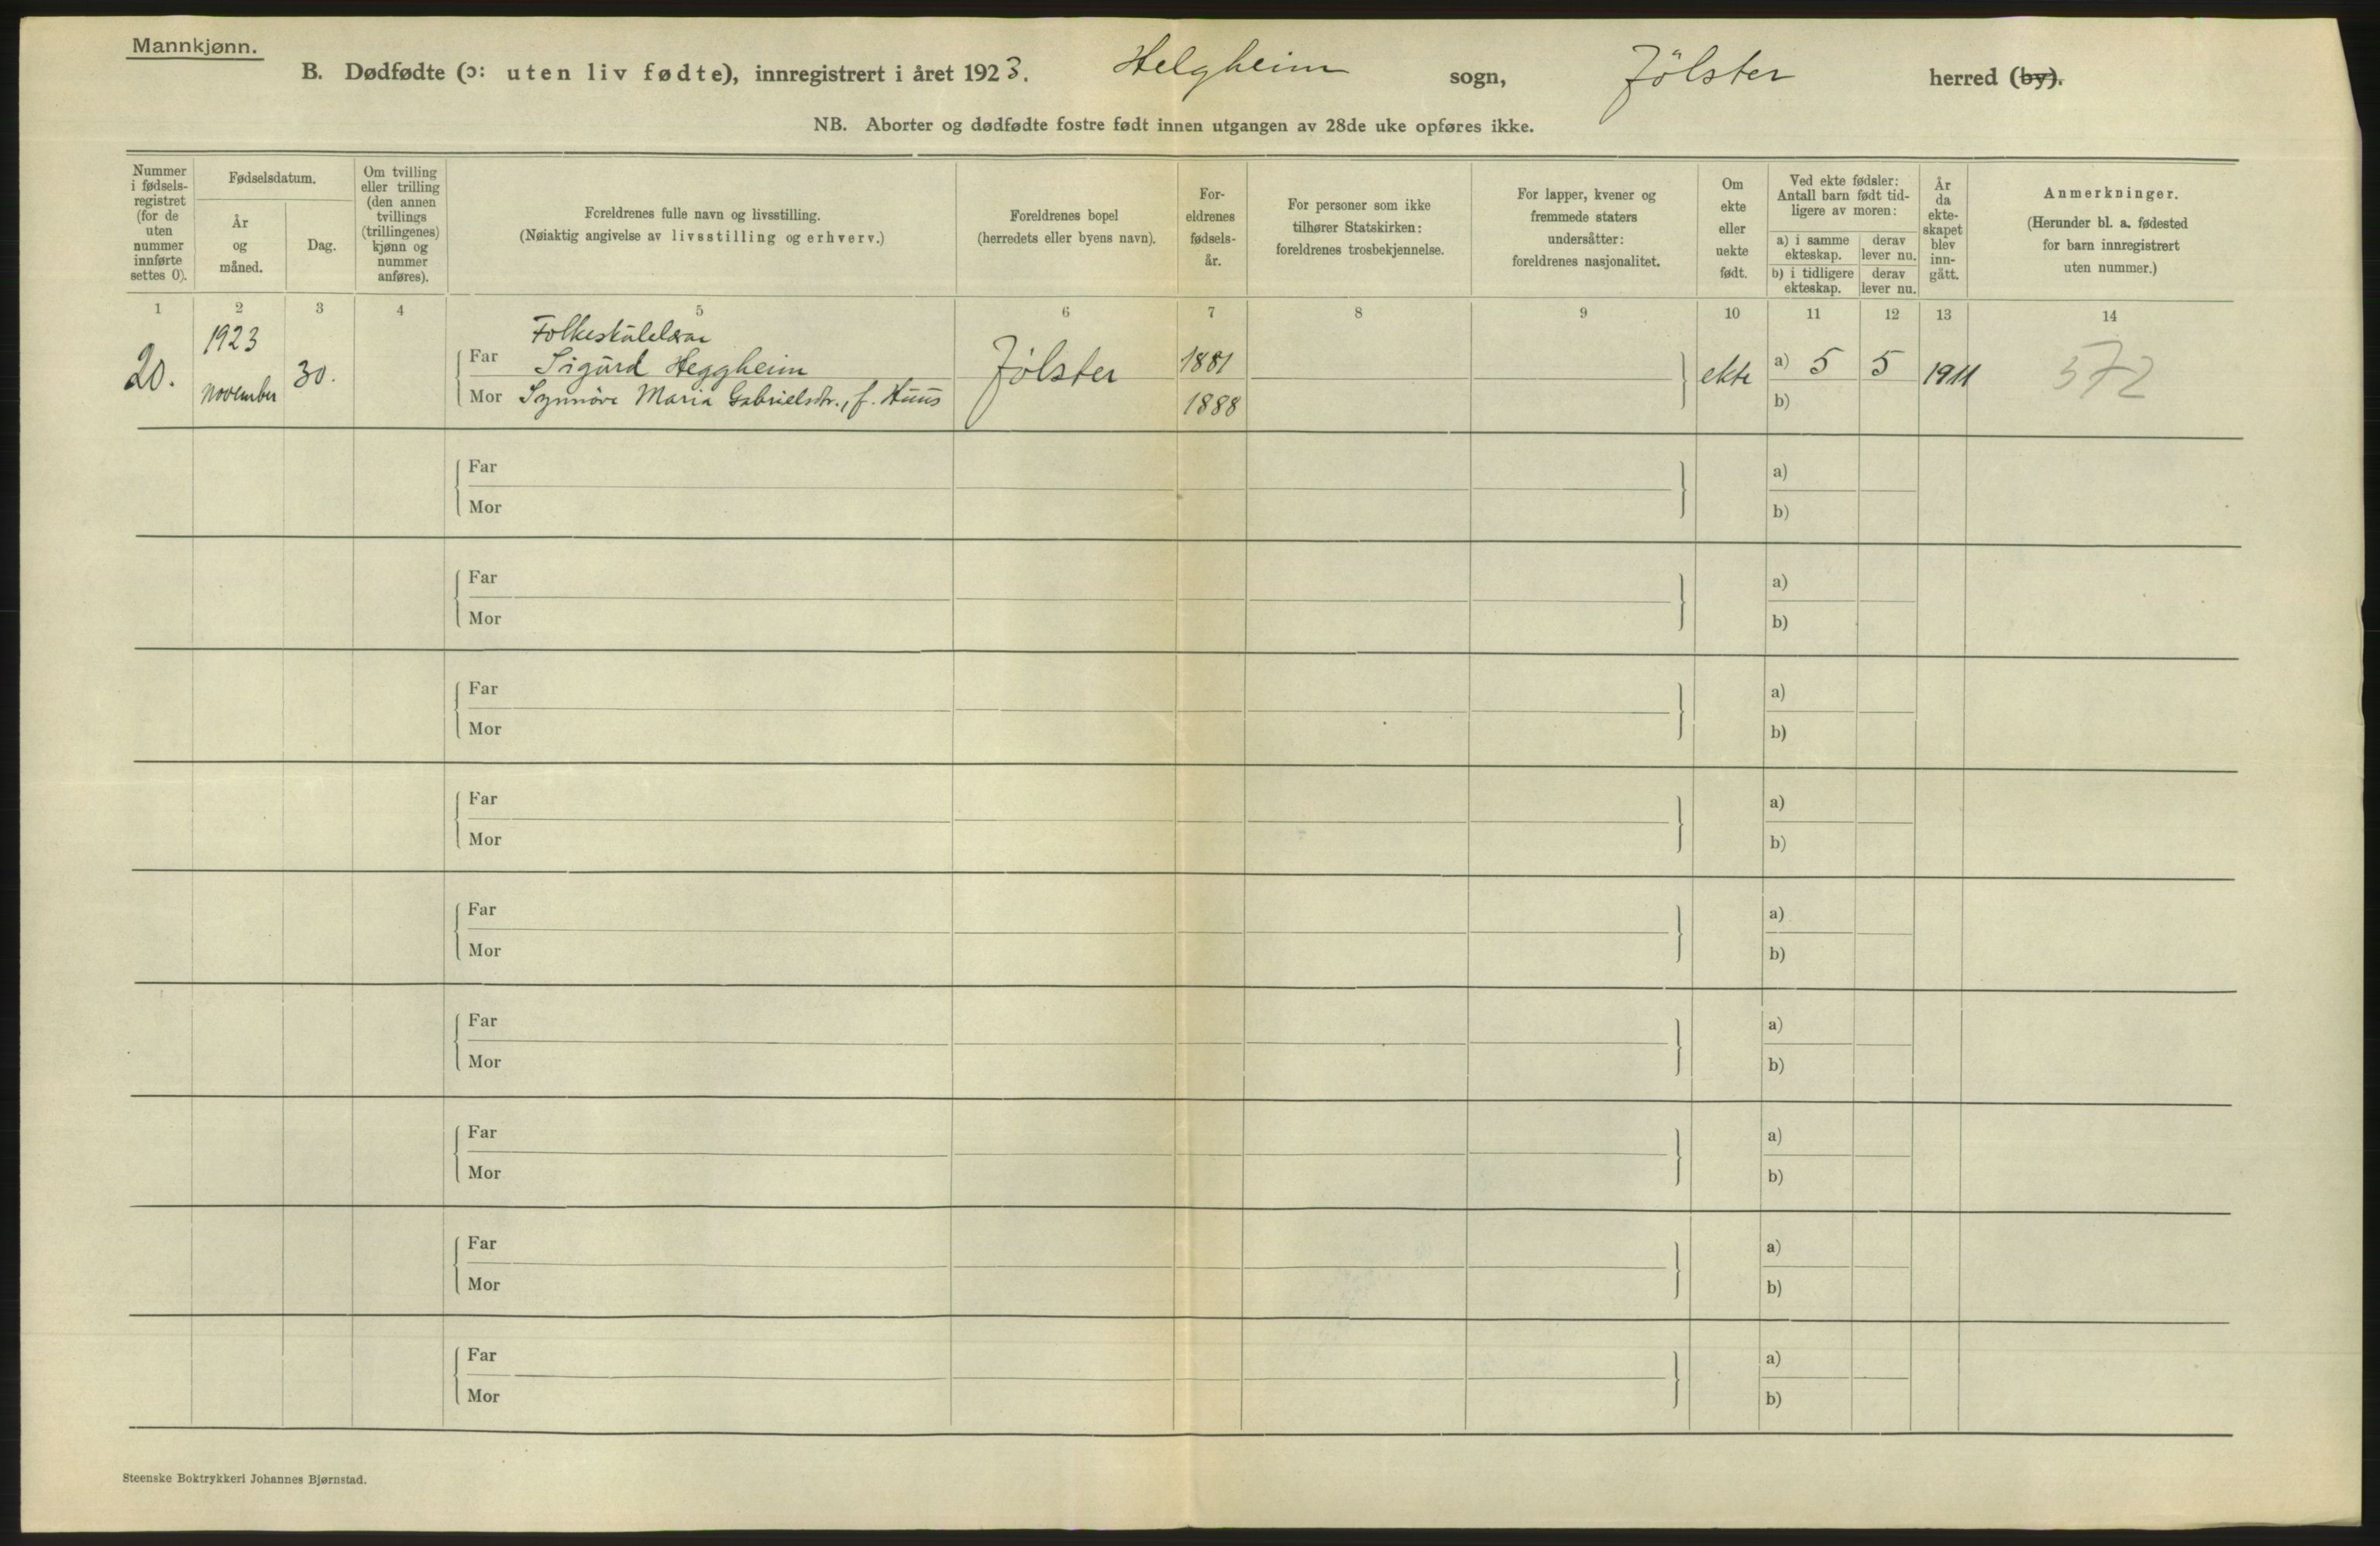 Mannkjønn.
B. Dødfødte (ɔ: uten liv fødte), innregistrert i året 1923. Helgheim sogn, Jölster herred (by).
NB. Aborter og dødfødte fostre født innen utgangen av 28de uke opføres ikke.
Nummer
i fødsels-
registret
(for de
uten
nummer
innførte
settes 0).
Fødselsdatum.
År
og
måned.
Dag.
Om tvilling
eller trilling
(den annen
tvillings
(trillingenes)
kjønn og
nummer
anføres).
Foreldrenes fulle navn og livsstilling.
(Nøiaktig angivelse av livsstilling og erhverv.)
Foreldrenes bopel
(herredets eller byens navn).
For-
eldrenes
fødsels-
år.
For personer som ikke
tilhører Statskirken:
foreldrenes trosbekjennelse.
For lapper, kvener og
fremmede staters
undersåtter:
foreldrenes nasjonalitet.
Om
ekte
eller
uekte
født.
Ved ekte fødsler:
Antall barn født tid-
ligere av moren:
a) i samme
ekteskap.
derav
lever nu.
b) i tidligere
ekteskap.
derav
lever nu.
År
da
ekte-
skapet
blev
inn-
gått.
Anmerkninger.
(Herunder bl. a. fødested
for barn innregistrert
uten nummer.)
1 2 3 4 5 6 7 8 9 10 11 12 13 14
20.
1923
november
30.
Folkeskulelærar
Far Sigurd Heggheim
Mor Synnöve Maria Gabrielsdtr., f. Huus
Jölster
1881
1888
ekte
a) 5 5
b)
1911
572
Far a)
Mor b)
Far a)
Mor b)
Far a)
Mor b)
Far a)
Mor b)
Far a)
Mor b)
Far a)
Mor b)
Far a)
Mor b)
Far a)
Mor b)
Far a)
Mor b)
Steenske Boktrykkeri Johannes Bjørnstad.